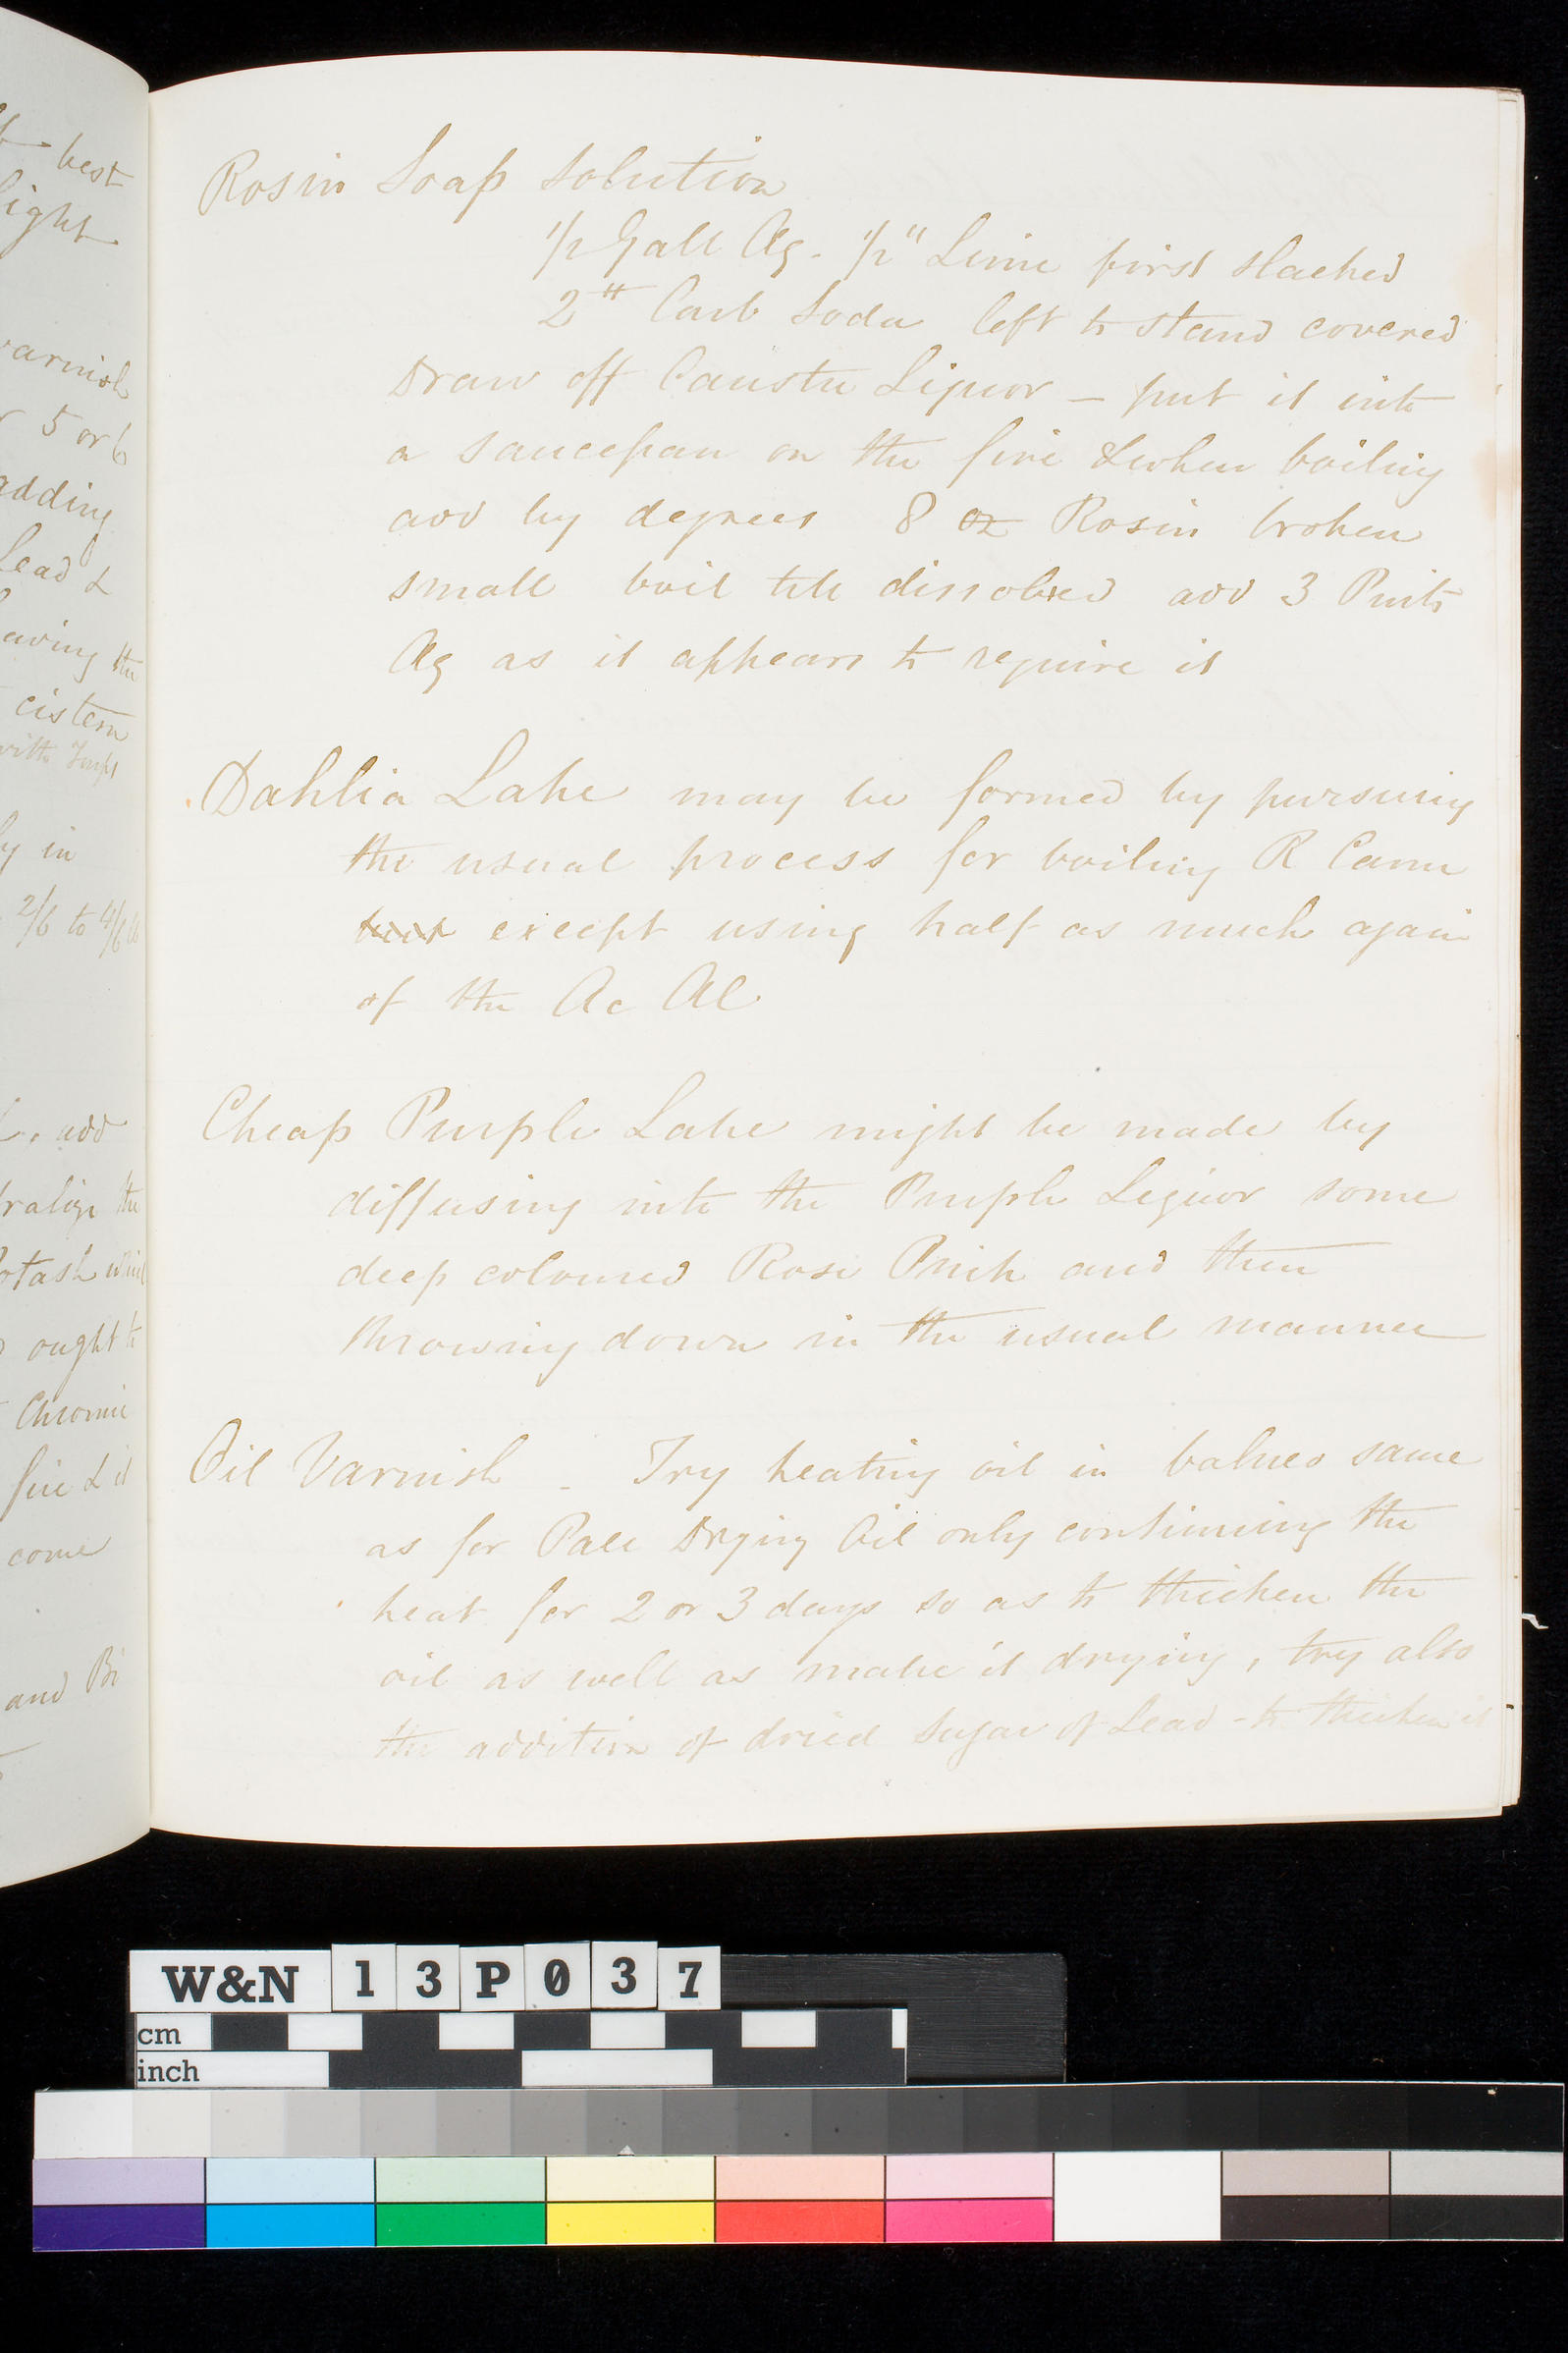 best
light
varnish
5 or 6
adding
Lead &
the
cistern
with Turps
in
2/6 to 4/6
add
the
ought to
Chromic
fire & it
come
and Bi
Rosin Soap Solution
1/2 Gall Aq. 1/2 " Lime first slacked
2 " Carb Soda left to stand covered
Draw off Caustic Liquor — put it into
a saucepan on the fire & when boiling
add by degrees 8 oz Rosin broken
small boil till dissolved add 3 Pints
Aq as it appears to require it
Dahlia Lake may be formed by pursuing
the usual process for boiling R Carm
but except using half as much again
of the Ac Al
Cheap Purple Lake might be made by
diffusing into the Purple Liquor some
deep coloured Rose Pink and then
throwing down in the usual manner
Oil Varnish - Try heating oil in balneo same
as for Pale Drying Oil only continuing the
heat for 2 or 3 days so as to thicken the
oil as well as make it drying, try also
the addition of dried Sugar of Lead - to thicken it
W&N 13P037
cm
inch